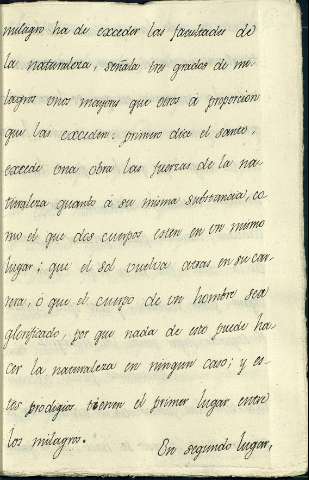 milagro ha de exceder las facultades de
la naturaleza, señala tres grados de mi-
lagros unos mayores que otros á proporcion
que las exceden: primero dice el santo,
excede una obra las fuerzas de la na-
turaleza quanto á su misma substancia, co-
mo el que dos cuerpos esten en un mismo
lugar; que el sol vuelva atras en su car-
rera, ó que el cuerpo de un hombre sea
glorificado, por que nada de esto puede ha-
cer la naturaleza en ningun caso; y es-
tos prodigios tienen el primer lugar entre
los milagros.
En segundo lugar,